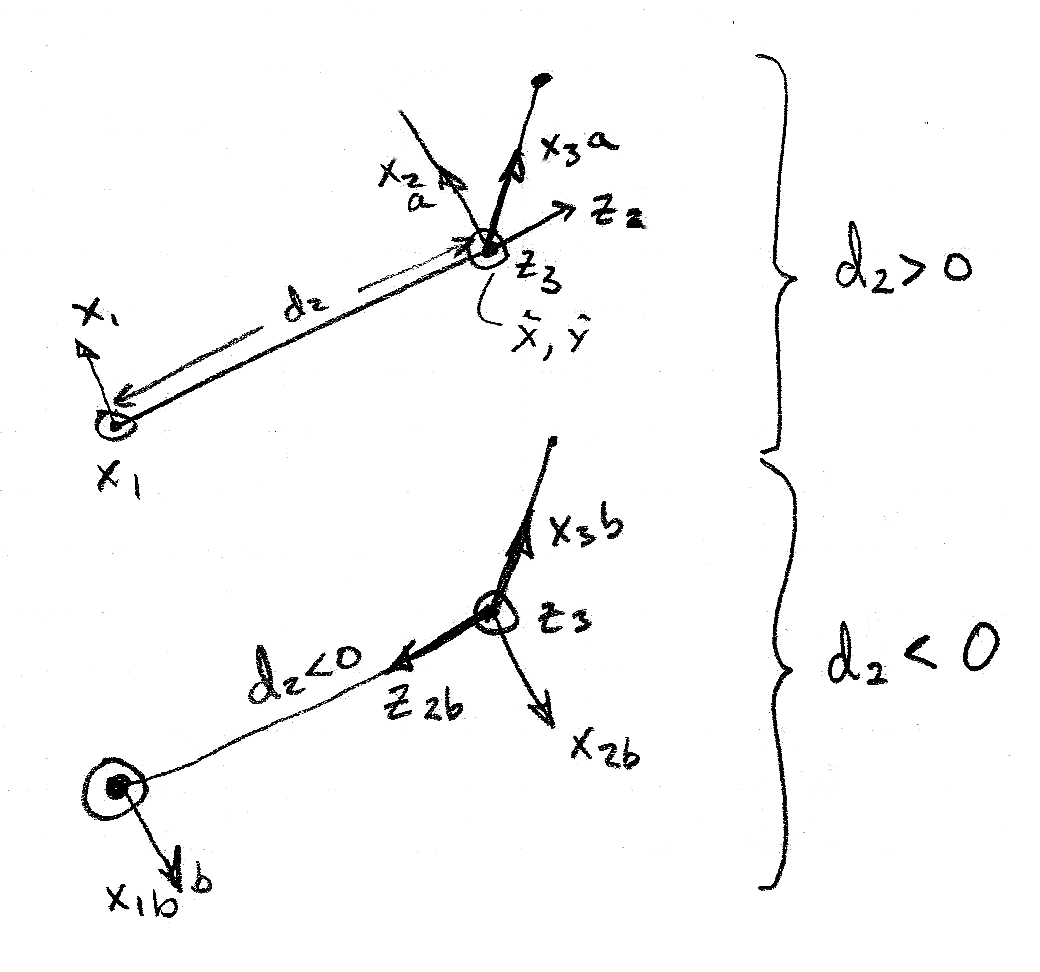 x₃a
x₂
a
z₂
z₃
d₂
x̂, ŷ
x₁
x₁
d₂ > 0
x₃b
z₃
d₂<0
z₂b
x₂b
x₁b b
d₂ < 0